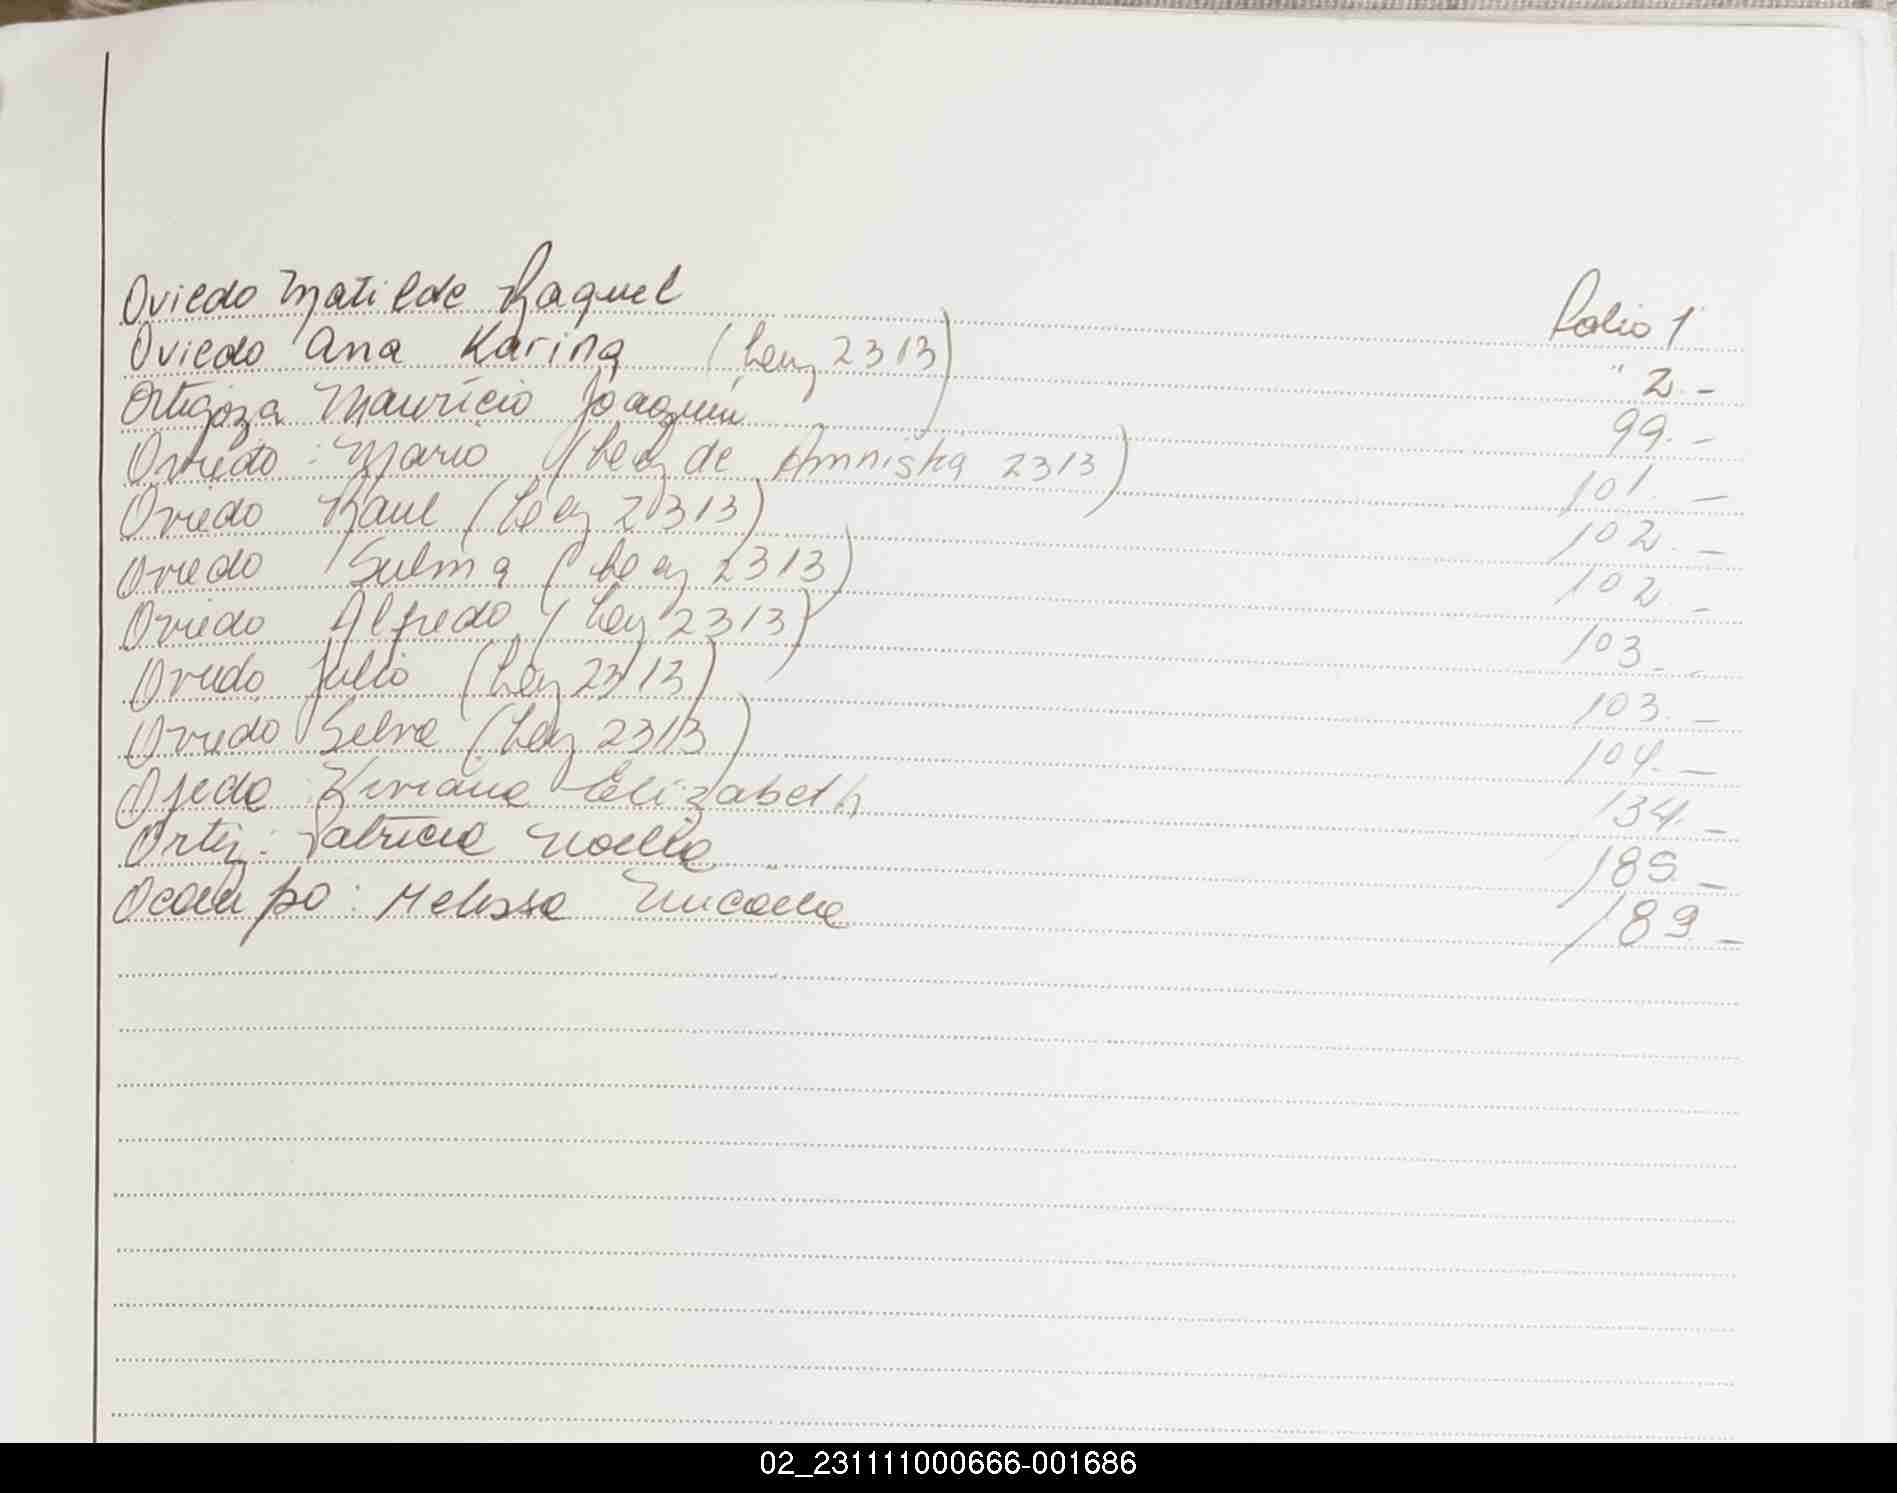 Oviedo Matilde Raquel Folio 1
Oviedo Ana Karina (Ley 2313) " 2.-
Ortigoza Mauricio Joaquín 99.-
Oviedo: Mario (Ley de Amnistia 2313) 101.-
Oviedo Raul (Ley 2313) 102.-
Oviedo Sulma (Ley 2313) 102.-
Oviedo Alfredo (Ley 2313) 103.-
Oviedo Julio (Ley 2313) 103.-
Oviedo Selva (Ley 2313) 104.-
Ojeda: Viviana Elizabeth 134.-
Ortiz: Patricia Noelia 185.-
Ocampo: Melissa 189.-
02_231111000666-001686